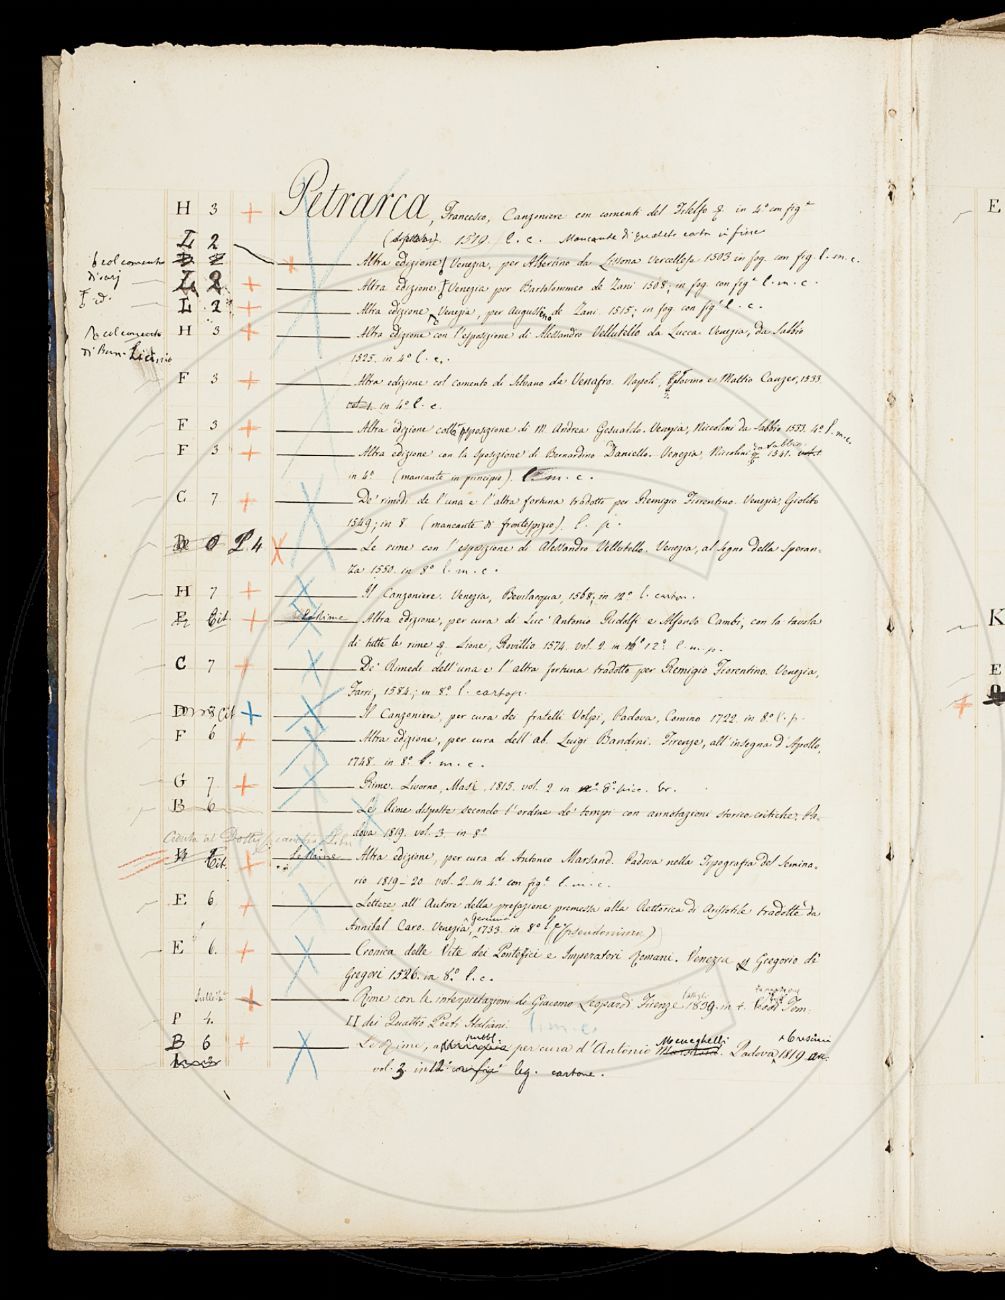 H 3 Petrarca, Francesco, Canzoniere con comenti del Filelfo &. in 4.° con fig.e
L 2 1519. l. c. Mancante di quarta carta in fine
col comento Altra edizione Venezia, per Albertino da Lissona Vercellese 1503 in fog. con fig. l. m. c.
L 2 Altra edizione Venezia per Bartolommeo de Zani 1508; in fog. con fig. l. m. c.
L 2 Altra edizione, Venezia, per Augustino de Zani. 1515; in fog. con fig. l. c.
col comento H 3 Altra edizione con l'esposizione di Alessandro Vellutello da Lucca. Venezia, da Sabbio
1525. in 4.° l. c.
F 3 Altra edizione col comento di Silvano da Venafro. Napoli, Jovino e Mattio Canzer, 1533.
in 4.° l. c.
F 3 Altra edizione colla sposizione di M. Andrea Gesualdo. Venezia, Niccolini da Sabbio 1533. 4.° l. m. c.
F 3 Altra edizione con la sposizione di Bernardino Daniello. Venezia, Niccolini da Sabbio 1541.
in 4.° (mancante in principio). l. m. c.
C 7 De' rimedi de l'una e l'altra fortuna tradotto per Remigio Fiorentino. Venezia, Giolito
1549; in 8 (mancante di frontespizio). l. p.
P 4 Le rime con l'esposizione di Alessandro Vellutello. Venezia, al Segno della Speran-
za 1550. in 8.° l. m. c.
H 7 Il Canzoniere. Venezia, Bevilacqua, 1568; in 12.° l. carton.
Cit. Le Rime Altra edizione, per cura di Luc' Antonio Ridolfi e Alfonso Cambi, con la tavola
di tutte le rime &. Lione, Rovillio 1574. vol. 2. in 12.° l. m. p.
C 7 De' Rimedi dell'una e l'altra fortuna tradotto per Remigio Fiorentino. Venezia,
Farri, 1584; in 8.° l. cartop.
Cit Il Canzoniere, per cura dei fratelli Volpi, Padova, Comino 1722. in 8.° l. p.
F 6 Altra edizione, per cura dell'ab. Luigi Bandini. Firenze, all'insegna d'Apollo,
1748. in 8.° l. m. c.
G 7 Rime. Livorno, Masi, 1815. vol. 2 in 8.° picc. br.
B 6 Le Rime disposte secondo l'ordine de' tempi con annotazioni storico-critiche; Pa-
dova 1819. vol. 3. in 8.°
Cit. Le Rime Altra edizione, per cura di Antonio Marsand. Padova nella Tipografia del Semina-
rio 1819-20 vol. 2. in 4.° con fig.e l. m. c.
E 6 Lettere all'Autore della prefazione premessa alla Rettorica di Aristotile tradotta da
Annibal Caro. Venezia, 1733. in 8.° (Pseudonimo)
E 6. Cronica delle Vite dei Pontefici e Imperatori Romani. Venezia Gregorio di
Gregori 1526. in 8.° l. c.
Rime con le interpretazioni di Giacomo Leopardi Firenze 1839. in 4. Tom.
P 4. II dei Quattro Poeti Italiani. l. m. c.
B 6 Le Rime, pubbl. per cura d'Antonio Meneghelli Padova Crescini 1819
vol. 3 in 12.° leg. cartone.
E
K
E